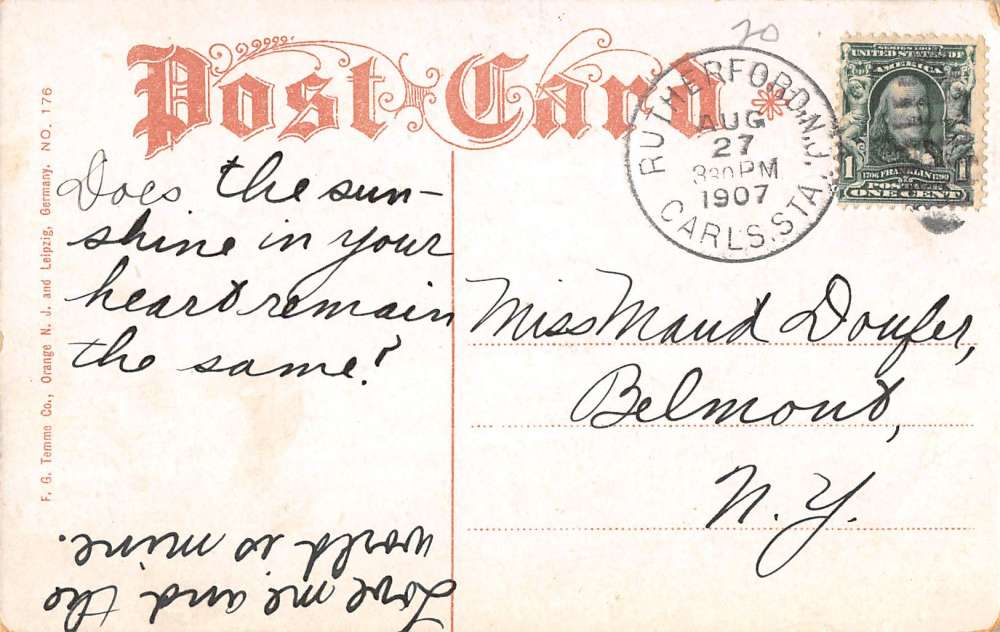 Post Card
20
RUTHERFORD, N.J.
AUG
27
330 PM
1907
CARLS. STA.
SERIES 1902
UNITED STATES OF
AMERICA
1 1
1706 FRANKLIN 1790
POSTAGE
ONE CENT
Does the sun-
shine in your
heart remain
the same?
Love me and the
world is mine.
Miss Maud
Belmont,
N. Y.
F. G. Temme Co., Orange N. J. and Leipzig, Germany. NO. 176